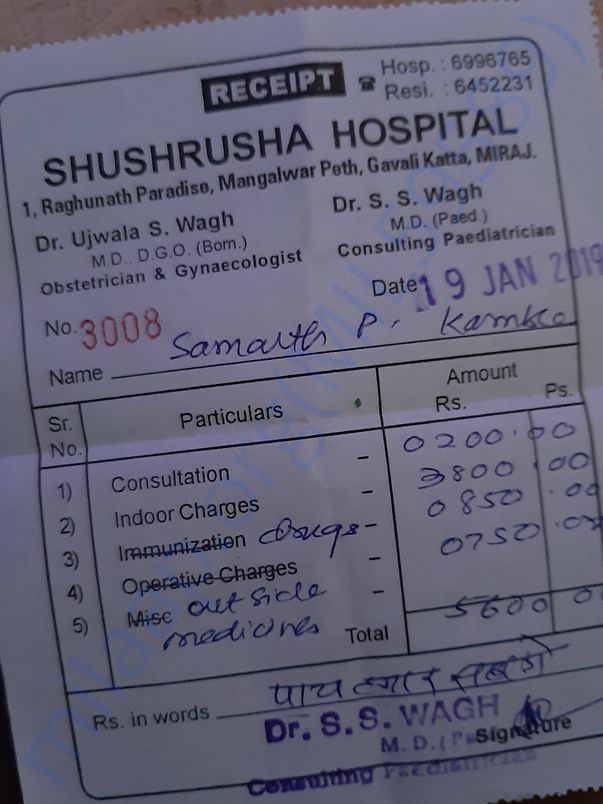 RECEIPT
Hosp. : 6996765
Resi. : 6452231
SHUSHRUSHA HOSPITAL
1, Raghunath Paradise, Mangalwar Peth, Gavali Katta, MIRAJ.
Dr. Ujwala S. Wagh
M.D.. D.G.O. (Bom.)
Obstetrician & Gynaecologist
Dr. S. S. Wagh
M.D. (Paed.)
Consulting Paediatrician
Date 19 JAN 2019
No. 3008
Name Samarth P. Kamble
Sr. No. Particulars Amount Rs. Ps.
1) Consultation - 0200.00
2) Indoor Charges - 3800.00
3) Immunization drugs - 0850.00
4) Operative Charges - 0750.00
5) Misc outside medicines -
Total 5600
Rs. in words
Dr. S.S. WAGH
M. D. Signature
Consulting Paediatrician